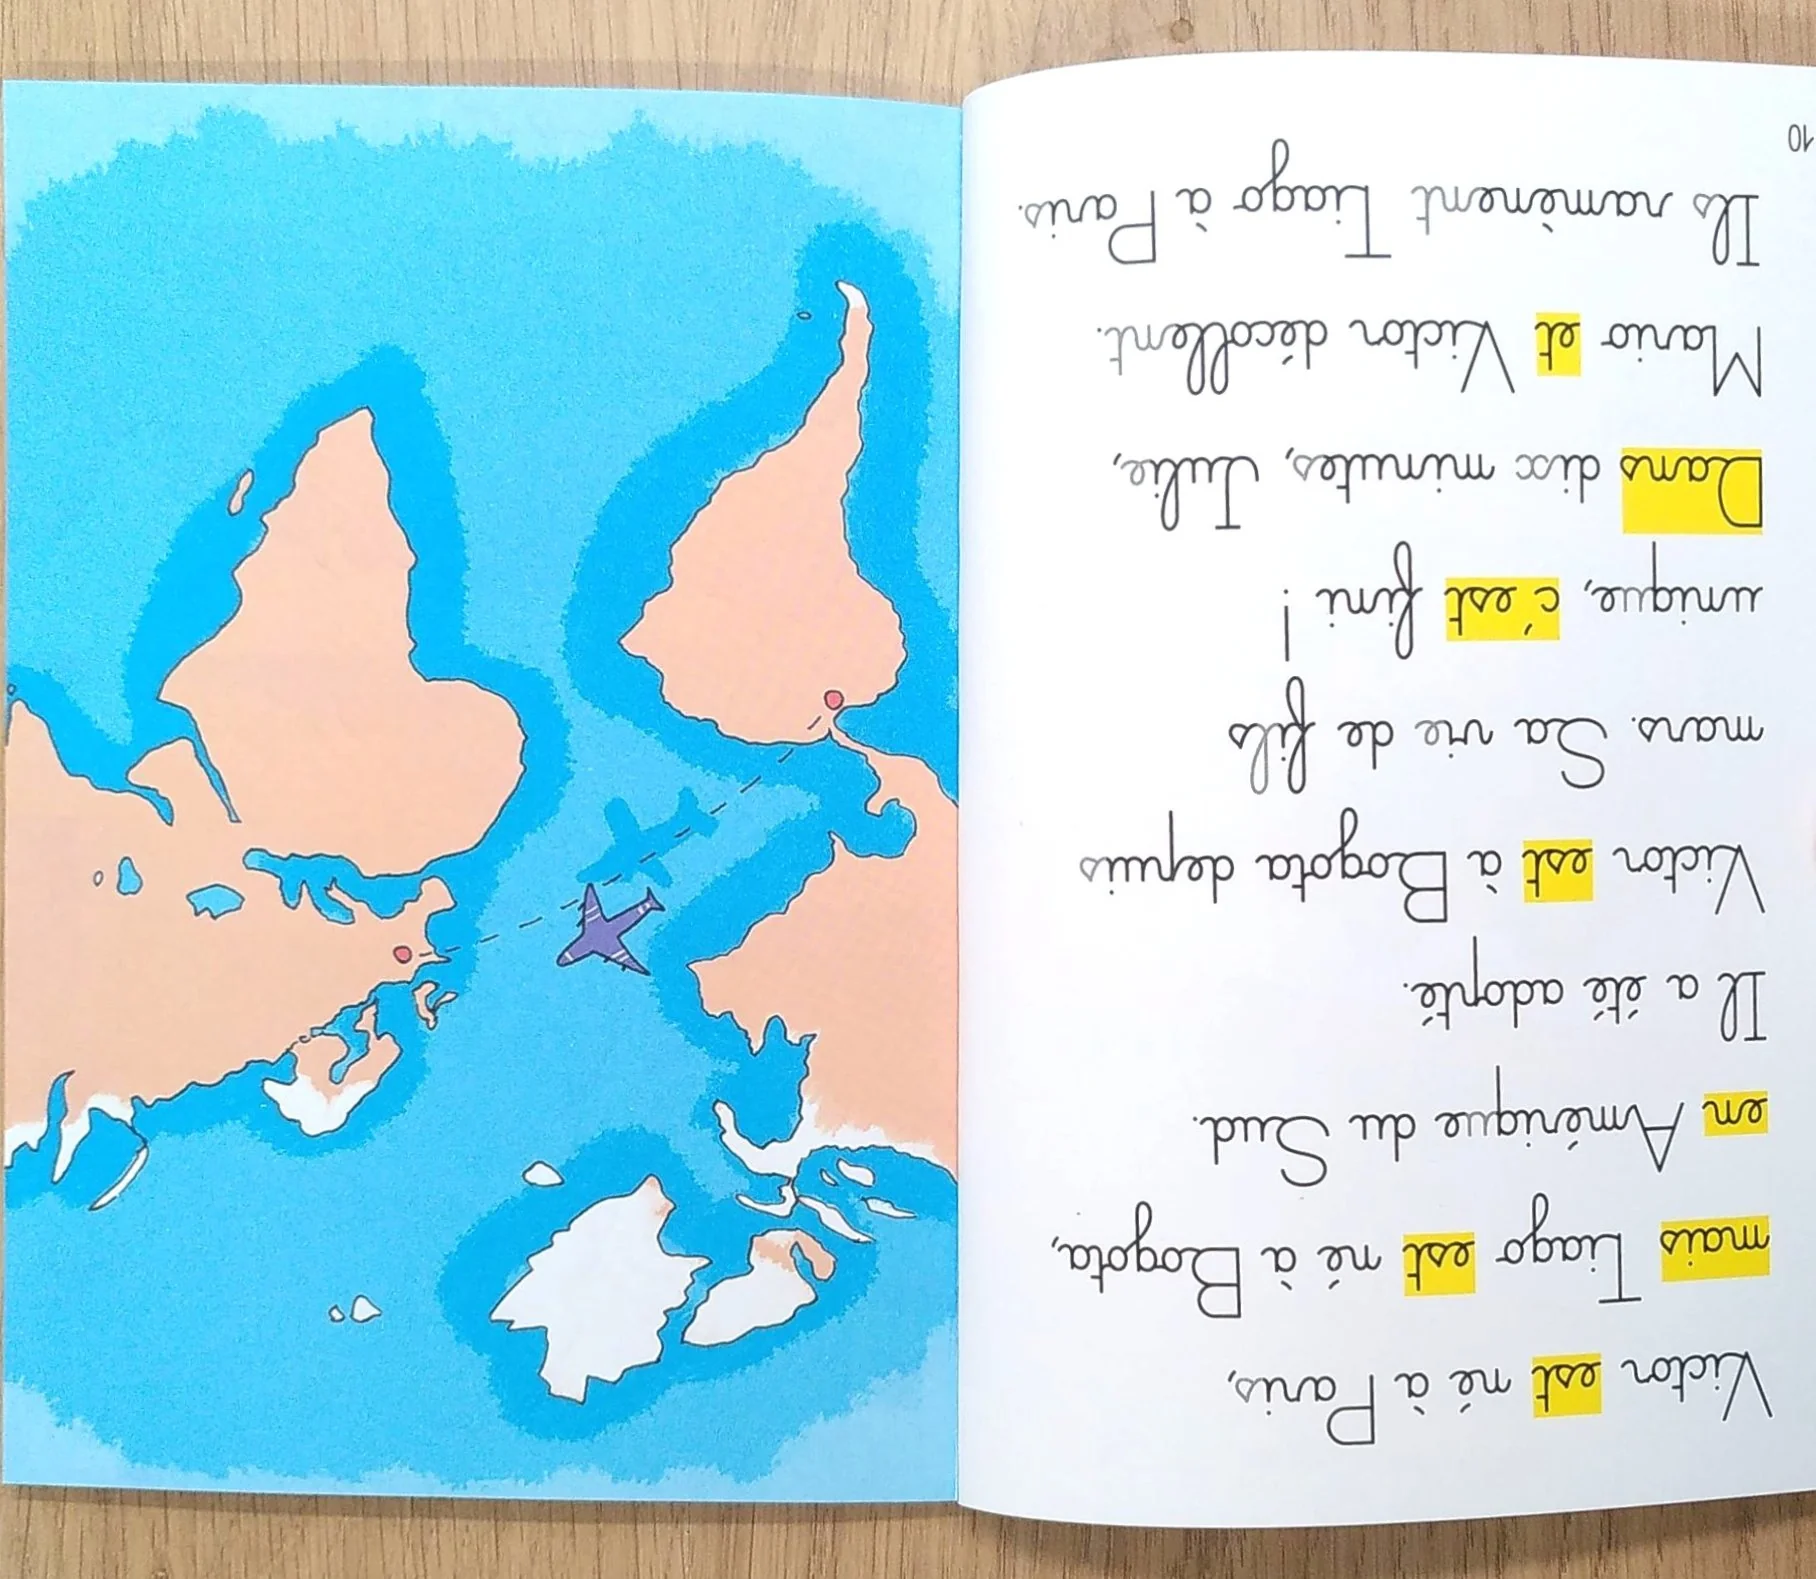 Victor est né à Paris,
mais Tiago est né à Bogota,
en Amérique du Sud.
Il a été adopté.
Victor est à Bogota depuis
mars. Sa vie de fils
unique, c'est fini !
Dans dix minutes, Julie,
Mario et Victor décollent.
Ils ramènent Tiago à Paris.
10